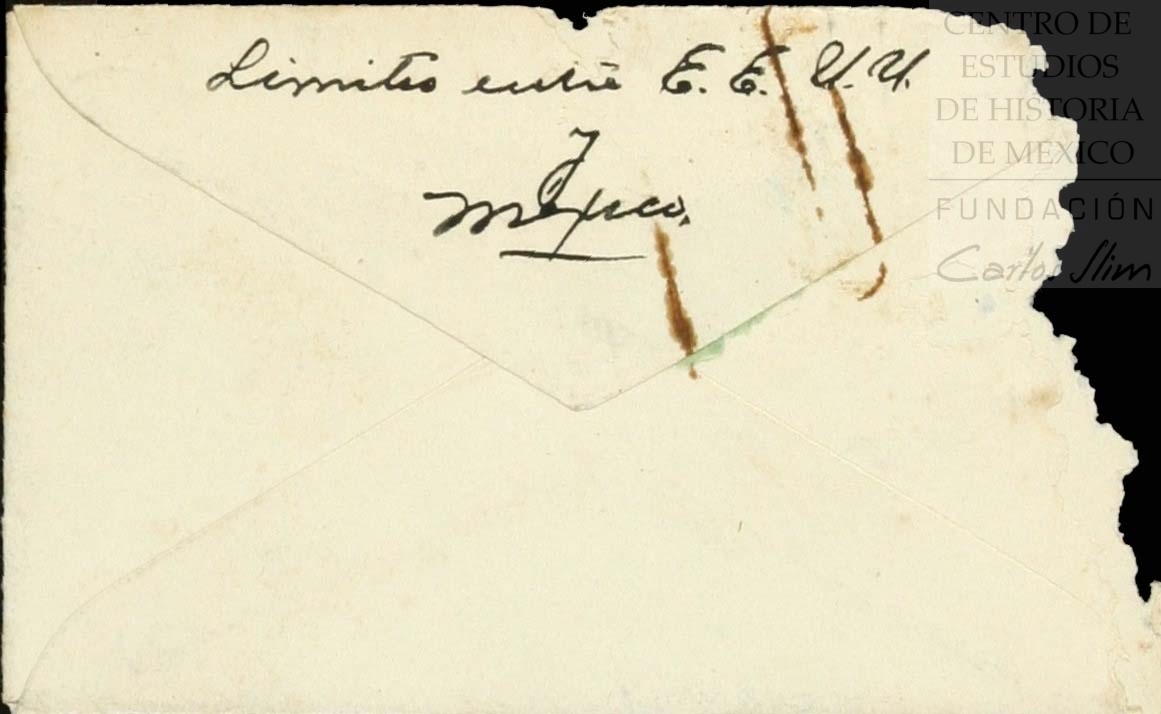 Limites entre E. E. U. U.
y
Mexico.
CENTRO DE
ESTUDIOS
DE HISTORIA
DE MÉXICO
FUNDACIÓN
Carlos Slim